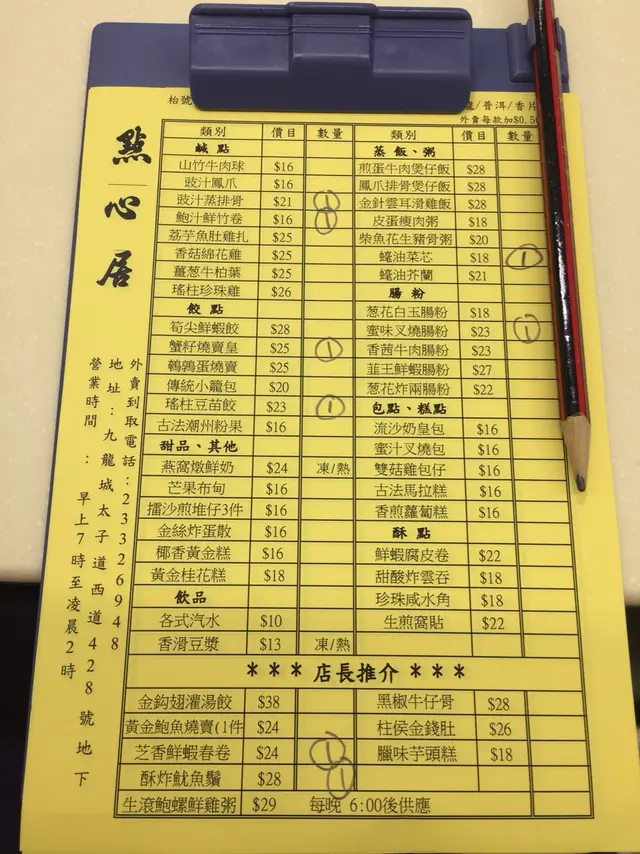 枱號
龍/普洱/香片
外賣每款加$0.50
點心居
外賣到取電話:23326948
地址:九龍城太子道西道428號地下
營業時間:早上7時至凌晨2時
類別 價目 數量
鹹點
山竹牛肉球 $16
豉汁鳳爪 $16
豉汁蒸排骨 $21 1
鮑汁鮮竹卷 $16 1
荔芋魚肚雞扎 $25
香菇綿花雞 $25
薑葱牛柏葉 $25
瑤柱珍珠雞 $26
餃點
筍尖鮮蝦餃 $28
蟹籽燒賣皇 $25 1
鵪鶉蛋燒賣 $25
傳統小籠包 $20
瑤柱豆苗餃 $23 1
古法潮州粉果 $16
甜品、其他
燕窩燉鮮奶 $24 凍/熱
芒果布甸 $16
擂沙煎堆仔3件 $16
金絲炸蛋散 $16
椰香黃金糕 $16
黃金桂花糕 $18
飲品
各式汽水 $10
香滑豆漿 $13 凍/熱
類別 價目 數量
蒸飯、粥
煎蛋牛肉煲仔飯 $28
鳳爪排骨煲仔飯 $28
金針雲耳滑雞飯 $28
皮蛋瘦肉粥 $18
柴魚花生豬骨粥 $20
蠔油菜芯 $18 1
蠔油芥蘭 $21
腸粉
葱花白玉腸粉 $18
蜜味叉燒腸粉 $23 1
香茜牛肉腸粉 $23
韮王鮮蝦腸粉 $27
葱花炸兩腸粉 $22
包點、糕點
流沙奶皇包 $16
蜜汁叉燒包 $16
雙菇雞包仔 $16
古法馬拉糕 $16
香煎蘿蔔糕 $16
酥點
鮮蝦腐皮卷 $22
甜酸炸雲吞 $18
珍珠咸水角 $18
生煎窩貼 $22
*** 店長推介 ***
金鈎翅灌湯餃 $38
黃金鮑魚燒賣(1件 $24
芝香鮮蝦春卷 $24 1
酥炸魷魚鬚 $28 1
生滾鮑螺鮮雞粥 $29 每晚 6:00後供應
黑椒牛仔骨 $28
柱侯金錢肚 $26
臘味芋頭糕 $18